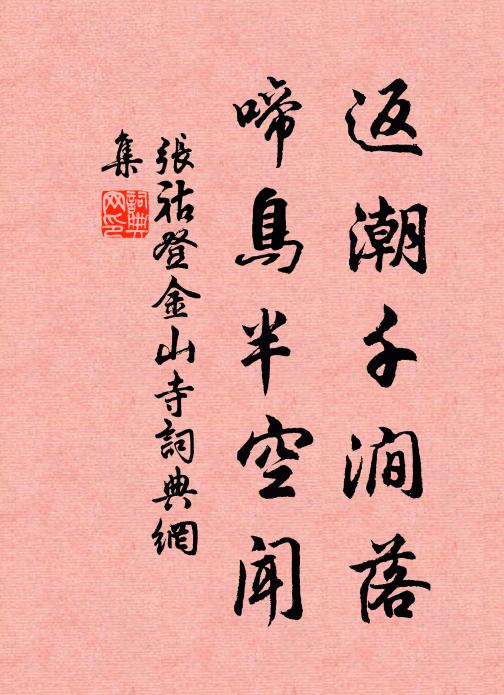 返潮千澗落
啼鳥半空聞
張祜登金山寺詞典網
集
詞典网印